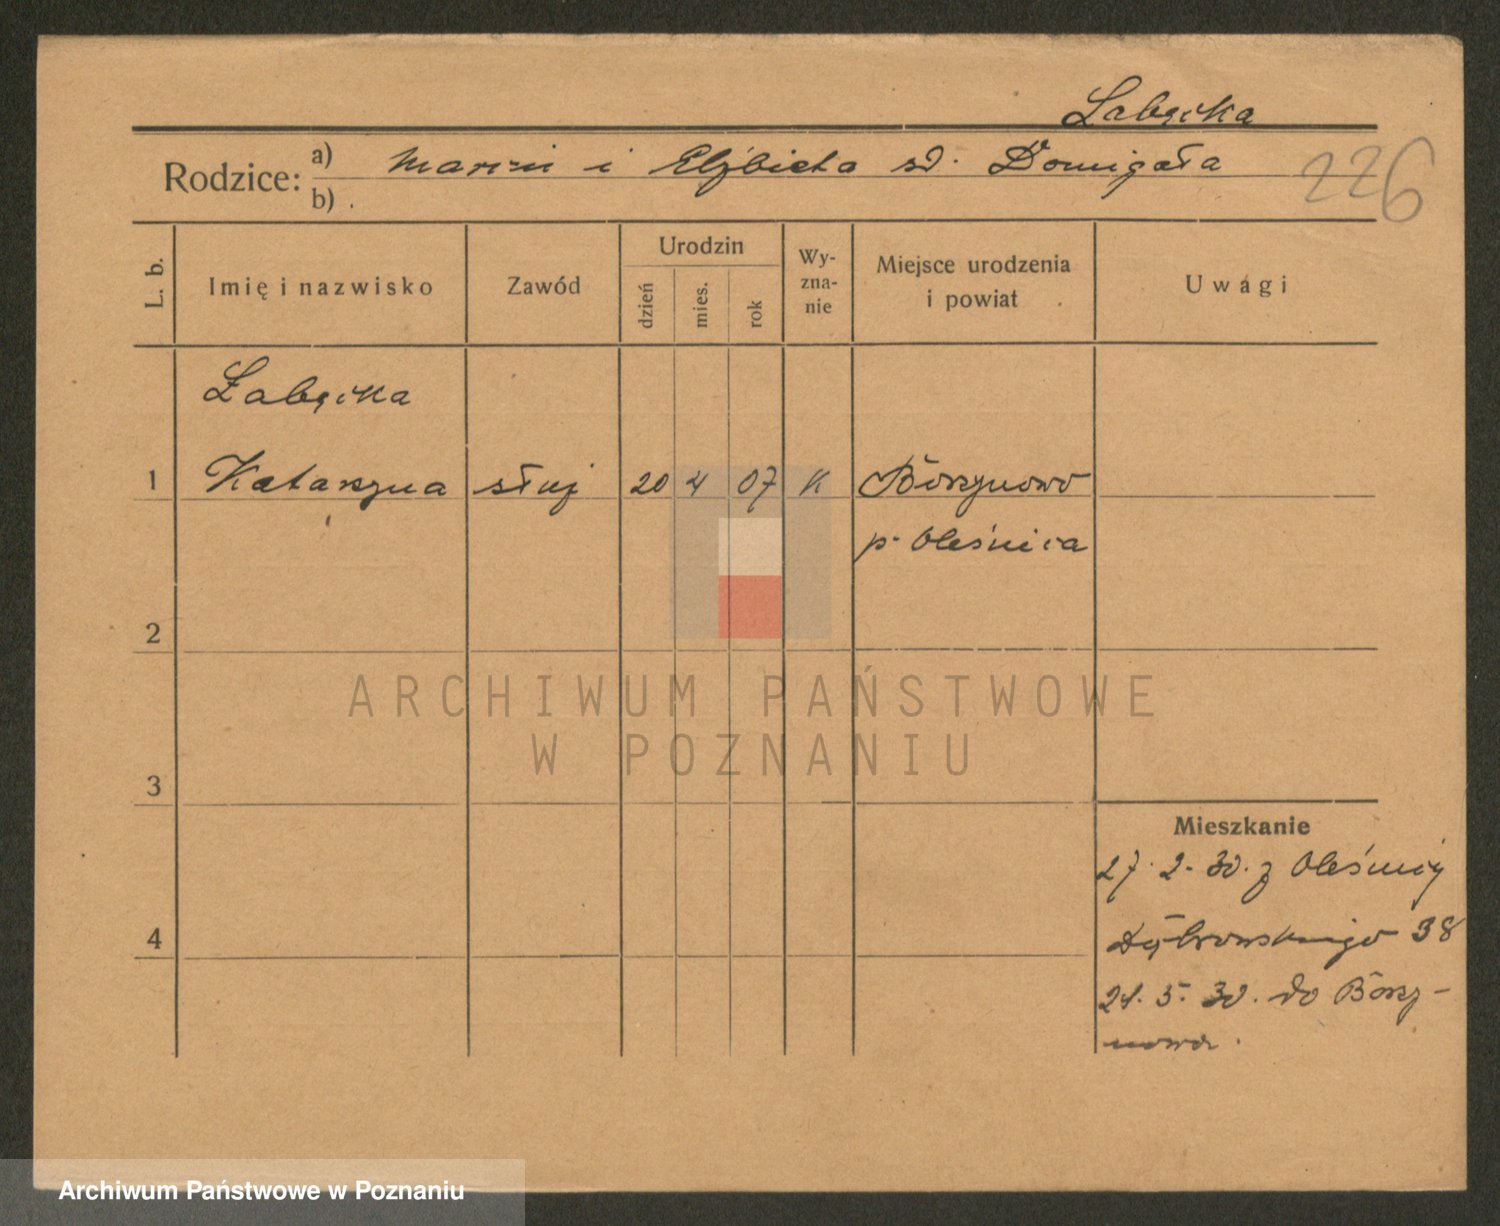 Łabęcka
Rodzice: a) Marcin i Elżbieta sd. Domigała
b)
226
L. b. Imię i nazwisko Zawód Urodzin dzień mies. rok Wy-zna-nie Miejsce urodzenia i powiat Uwagi
Łabęcka
1 Katarzyna służ 20 4 07 K Borzynowo
p. Oleśnica
2
ARCHIWUM PAŃSTWOWE
W POZNANIU
3
Mieszkanie
27. 2. 30. z Oleśnicy
4 Dąbrowskiego 38
21. 5. 30. do Borzy-
nowa.
Archiwum Państwowe w Poznaniu